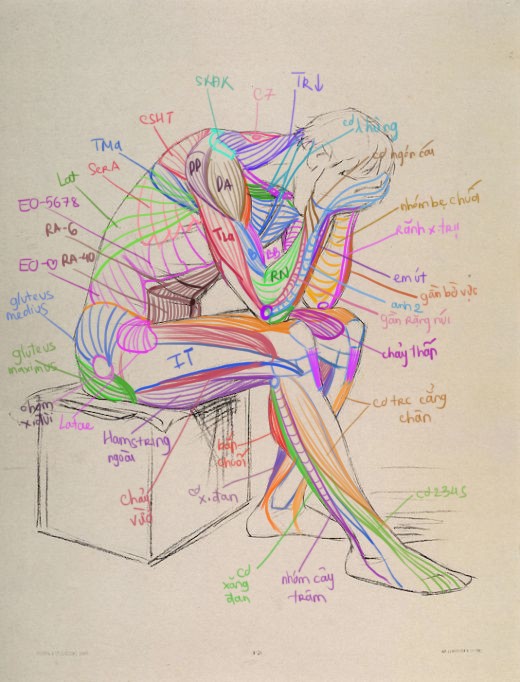 SXĐK
TR↓
C7
CSHT
cơ lhủng
TMa
cơ ngón cái
SerA
DP
DA
Lat
nhóm bẹ chuối
EO-5678
RA-6
TLa
rãnh x.trụ
EO-♡
RA-40
RN
em út
gân bồ vực
gluteus
medius
anh 2
gân răng núi
chảy thấp
IT
gluteus
maximus
chỏm
x.đùi
Latae
Hamstring
ngoài
cơ trc cẳng
chân
bắp
chuối
chảy
vào
cơ
x.đan
cơ 2345
cơ
xăng
đan
nhóm cây
trâm